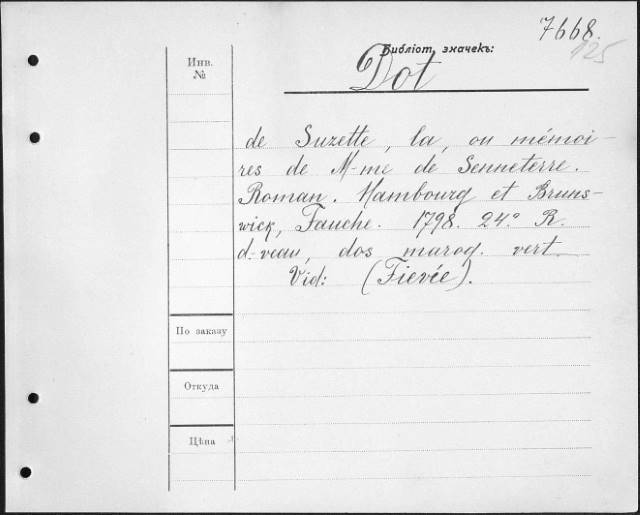 7668.
125
Библіот. значекъ:
Dot
Инв.
№
de Suzette, la, ou mémoi-
res de M-me de Senneterre.
Roman. Hambourg et Bruns-
wick, Fauche. 1798. 24° R.
d-veau, dos maroq. vert.
Vid: (Fievée).
По заказу
Откуда
Цѣна